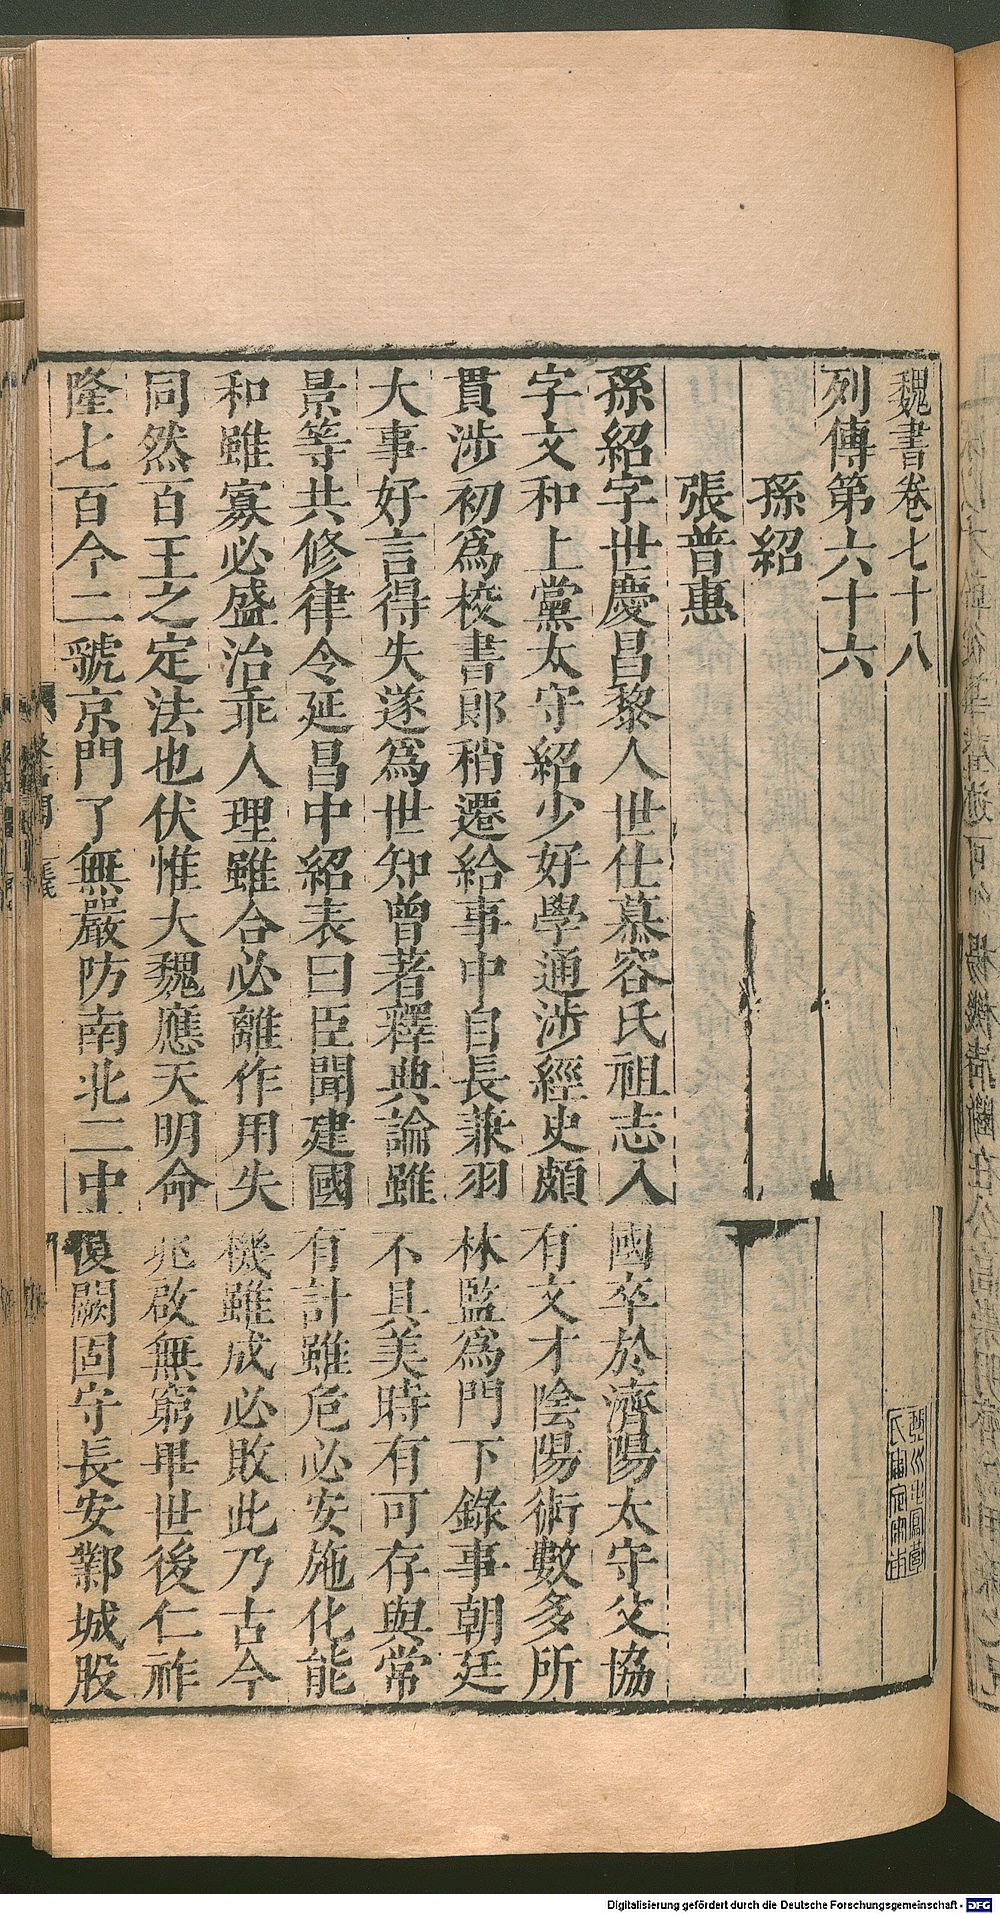 魏書卷七十八
列傳第六十六
孫紹
張普惠
孫紹字世慶昌黎人世仕慕容氏祖志入國卒於濟陽太守父協
字文和上黨太守紹少好學通涉經史頗有文才陰陽術數多所
貫涉初為校書郎稍遷給事中自長兼羽林監為門下錄事朝廷
大事好言得失遂為世知曾著釋典論雖不具美時有可存與常
景等共修律令延昌中紹表曰臣聞建國有計雖危必安施化能
和雖寡必盛治乖人理雖合必離作用失機雖成必敗此乃古今
同然百王之定法也伏惟大魏應天明命兆啟無窮畢世後仁祚
隆七百今二虢京門了無嚴防南北二中復闕固守長安鄴城股
Digitalisierung gefördert durch die Deutsche Forschungsgemeinschaft - DFG